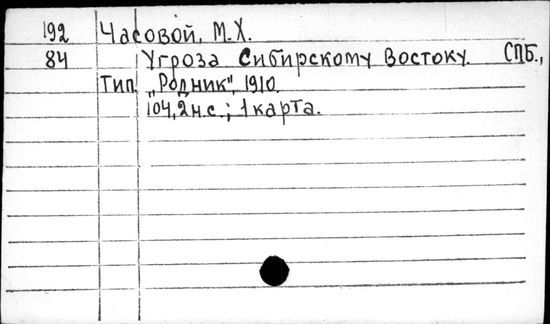 192 Часовой, М.Х.
84 Угроза Сибирскому Востоку. СПБ.,
Тип. „Родник", 1910.
104,2н.с.; 1 карта.